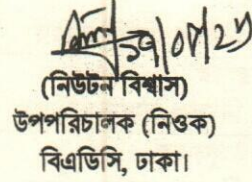 (নিউটন বিশ্বাস)
উপপরিচালক (নিওক)
বিএডিসি, ঢাকা।